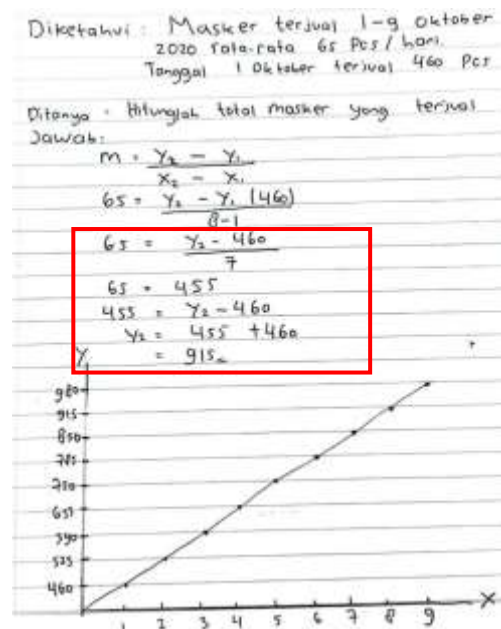 Diketahui : Masker terjual 1-9 Oktober
2020 rata-rata 65 Pcs / hari.
Tanggal 1 Oktober terjual 460 Pcs
Ditanya : Hitunglah total masker yang terjual
Jawab:
m = y₂ - y₁
x₂ - x₁
65 = y₂ - y₁ (460)
8-1
65 = y₂ - 460
7
65 = 455
455 = y₂ - 460
y₂ = 455 + 460
= 915
Y
980
915
850
785
720
655
590
525
460
1 2 3 4 5 6 7 8 9 X